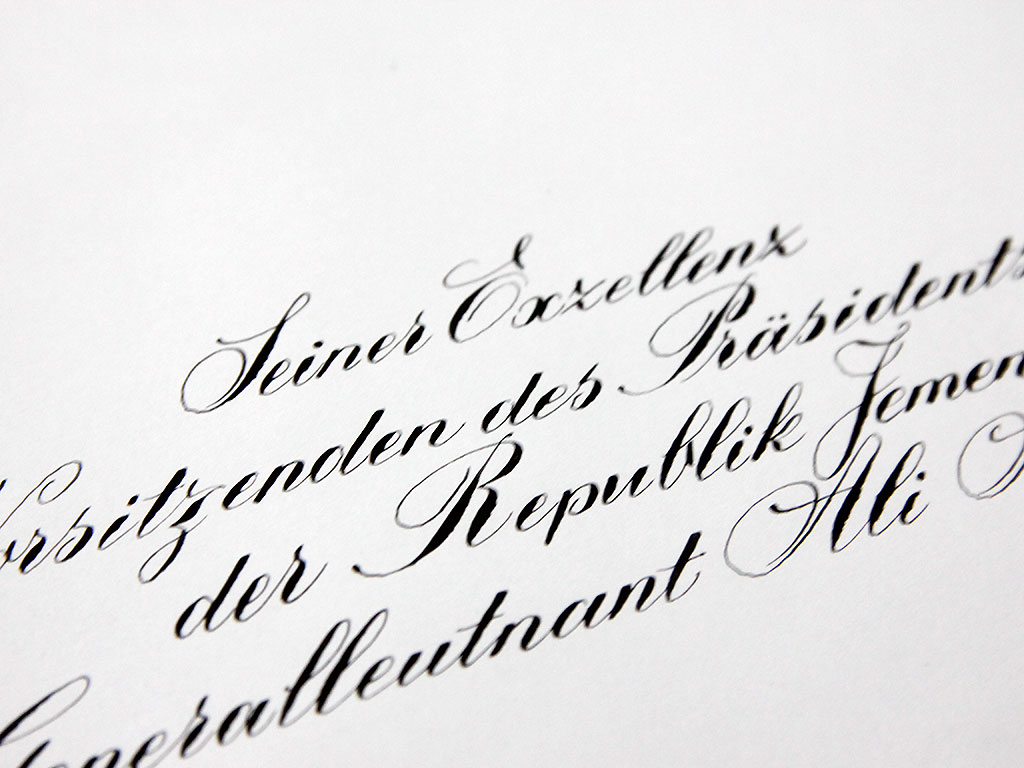 Seiner Exzellenz
Vorsitzenden des Präsidents
der Republik Jemen
Generalleutnant Ali